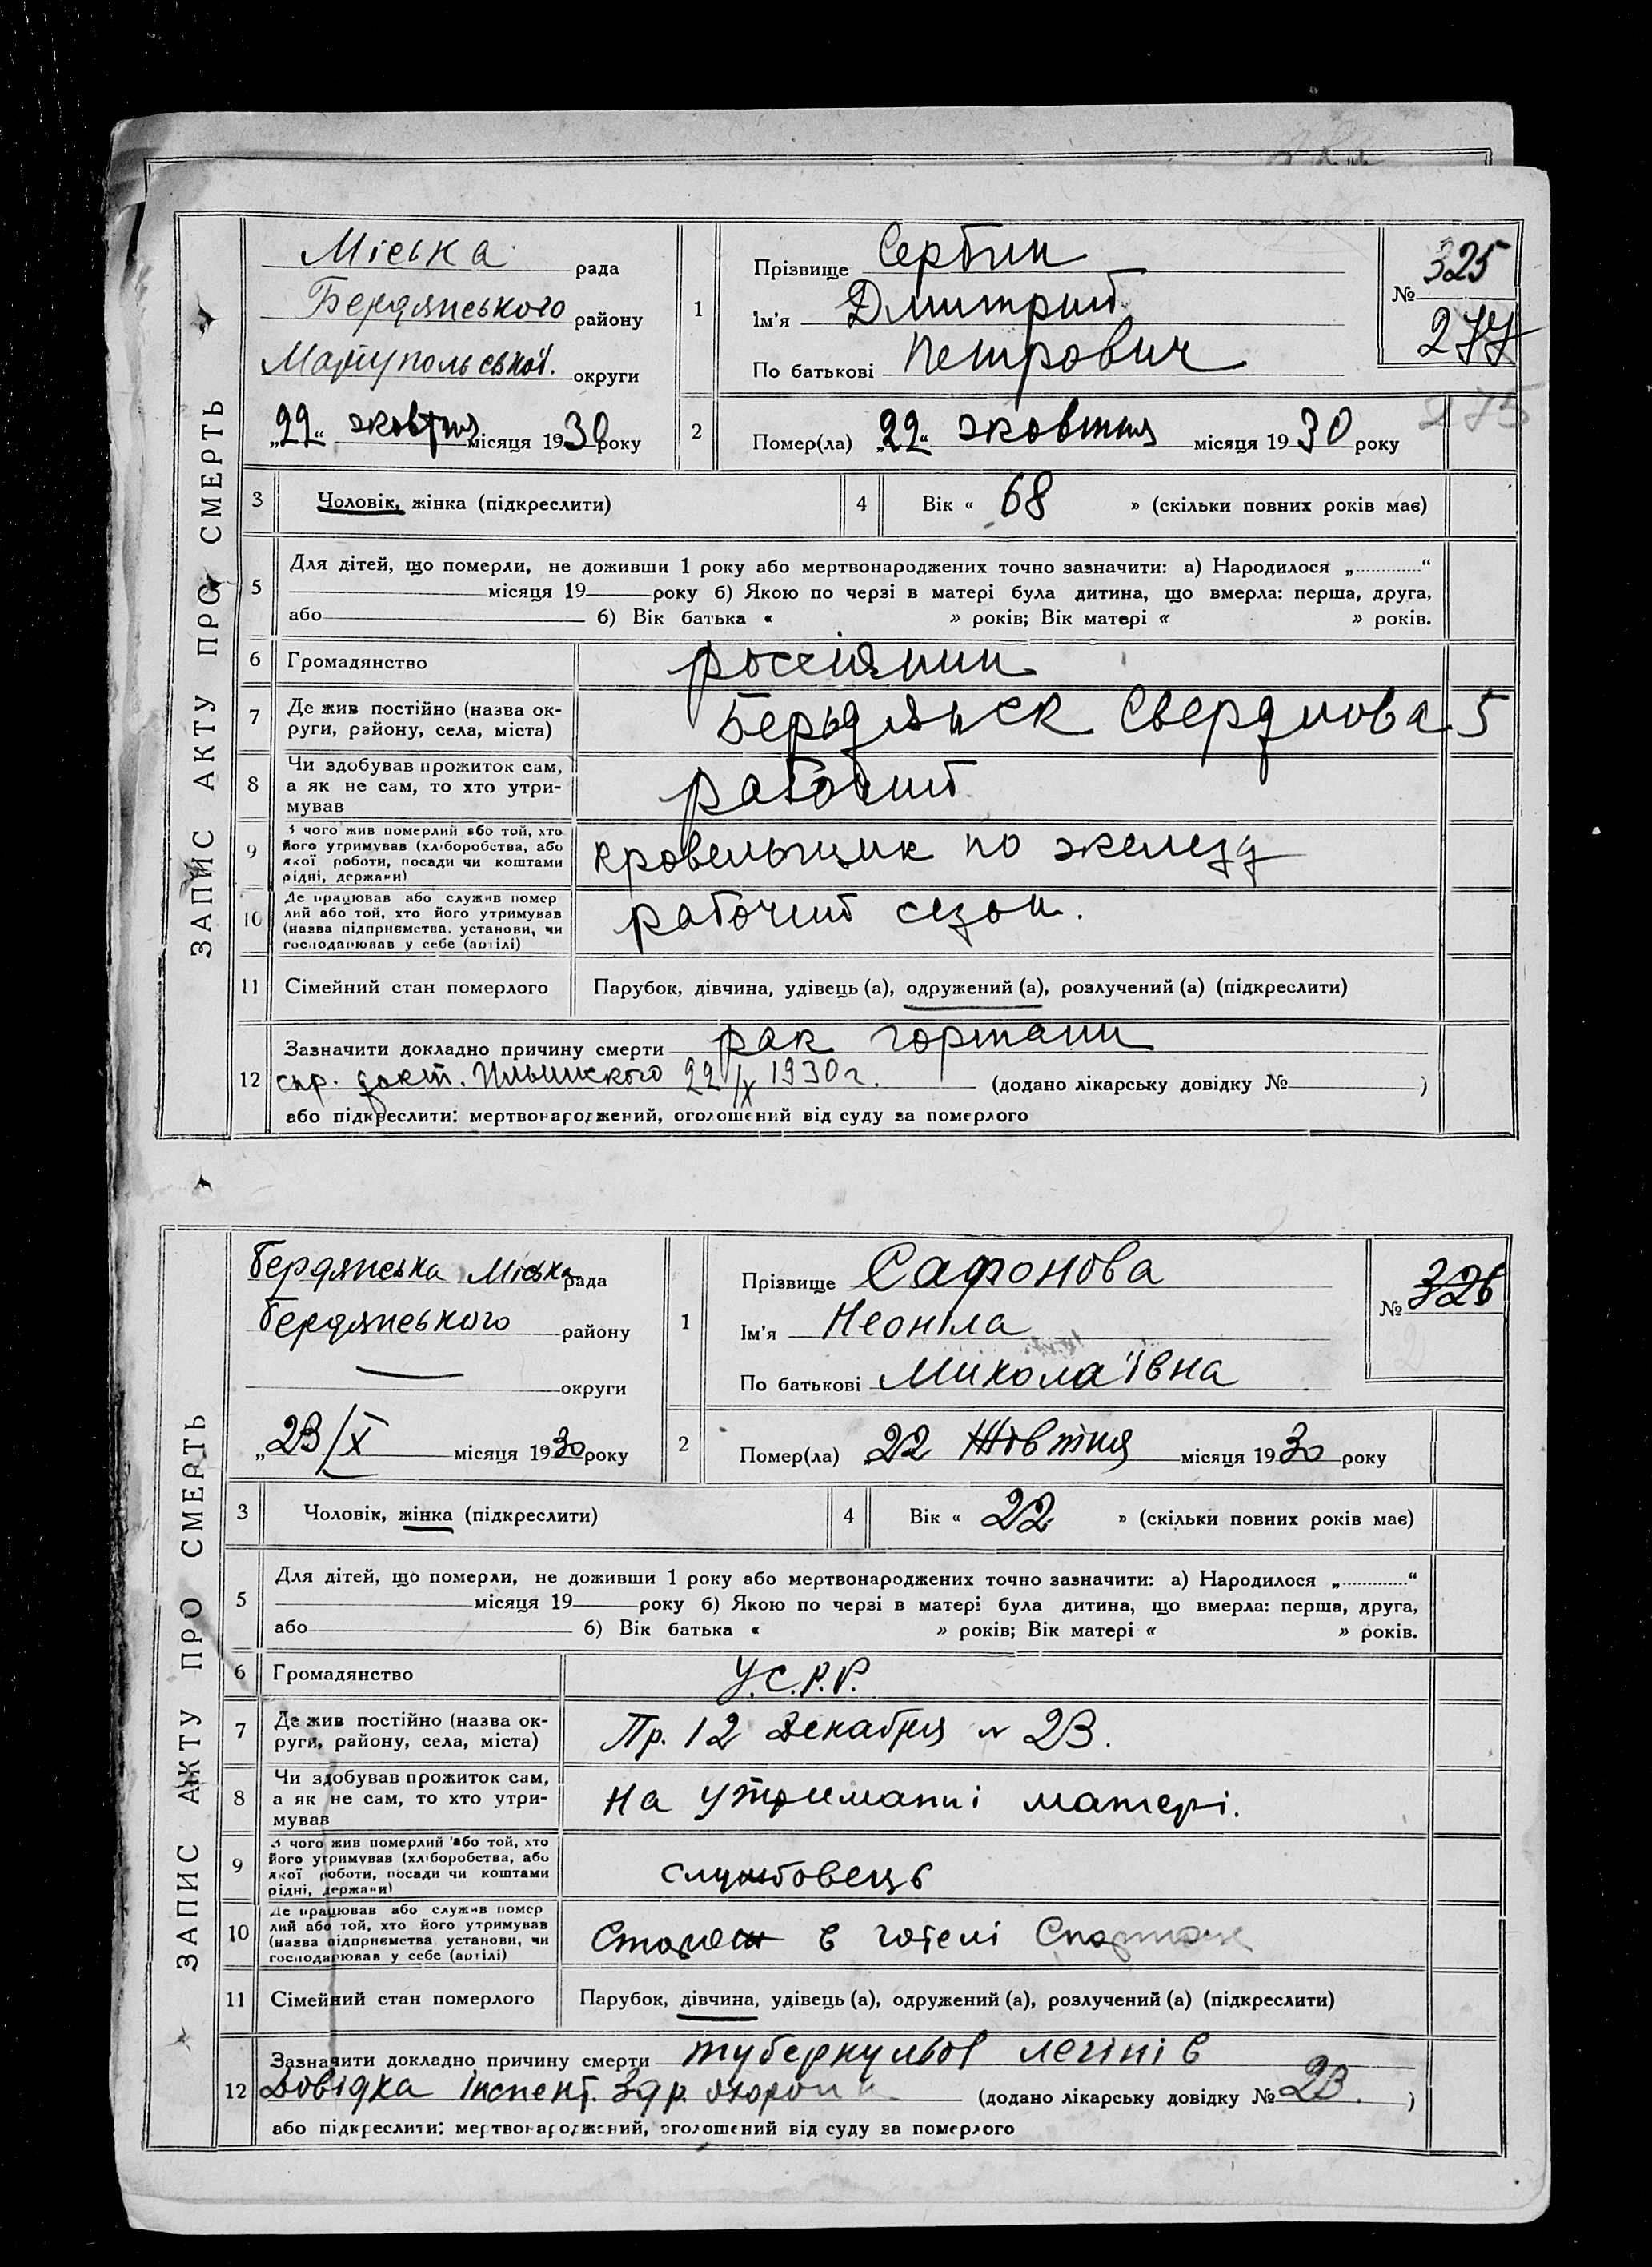 ЗАПИС АКТУ ПРО СМЕРТЬ
Міська рада
Бердянського району
Маріупольської. округи
„22“ жовтня місяця 1930 року
1 Прізвище Сербин
Ім'я Дмитрий
По батькові Петрович
№ 325
277
275
2 Помер(ла) „22“ жовтня місяця 1930 року
3 Чоловік, жінка (підкреслити) 4 Вік « 68 » (скільки повних років має)
5 Для дітей, що померли, не доживши 1 року або мертвонароджених точно зазначити: а) Народилося „............“
місяця 19 року б) Якою по черзі в матері була дитина, що вмерла: перша, друга,
або 6) Вік батька « » років; Вік матері « » років.
6 Громадянство россіянин
7 Де жив постійно (назва ок-
руги, району, села, міста) Бердянск Свердлова 5
8 Чи здобував прожиток сам,
а як не сам, то хто утри-
мував рабочий
9 З чого жив померлий або той, хто
його утримував (хліборобства, або
якої роботи, посади чи коштами
рідні, держави) кровельщик по железу
10 Де працював або служив помер
лий або той, хто його утримував
(назва підприємства, установи, чи
господарював у себе (артілі) рабочий сезон.
11 Сімейний стан померлого Парубок, дівчина, удівець (а), одружений (а), розлучений (а) (підкреслити)
12 Зазначити докладно причину смерти рак гортани
спр. докт. Ильинского 22/X 1930 г. (додано лікарську довідку № )
або підкреслити: мертвонароджений, оголошений від суду за померлого
ЗАПИС АКТУ ПРО СМЕРТЬ
Бердянська Міська рада
Бердянського району
округи
„23/X місяця 1930 року
1 Прізвище Сафонова
Ім'я Неоніла
По батькові Миколаївна
№ 326
2 Помер(ла) „22 Жовтня місяця 1930 року
3 Чоловік, жінка (підкреслити) 4 Вік « 22 » (скільки повних років має)
5 Для дітей, що померли, не доживши 1 року або мертвонароджених точно зазначити: а) Народилося „............“
місяця 19 року б) Якою по черзі в матері була дитина, що вмерла: перша, друга,
або 6) Вік батька « » років; Вік матері « » років.
6 Громадянство У.С.Р.Р.
7 Де жив постійно (назва ок-
руги, району, села, міста) Пр. 12 Декабря № 23.
8 Чи здобував прожиток сам,
а як не сам, то хто утри-
мував на утриманні матері.
9 З чого жив померлий або той, хто
його утримував (хліборобства, або
якої роботи, посади чи коштами
рідні, держави) службовець
10 Де працював або служив помер
лий або той, хто його утримував
(назва підприємства установи, чи
господарював у себе (артілі) Сторож в готелі Спартак
11 Сімейний стан померлого Парубок, дівчина, удівець (а), одружений (а), розлучений (а) (підкреслити)
12 Зазначити докладно причину смерти туберкульоз легінів
Довідка інспект. Здр. охорони (додано лікарську довідку № 23. )
або підкреслити: мертвонароджений, оголошений від суду за померлого